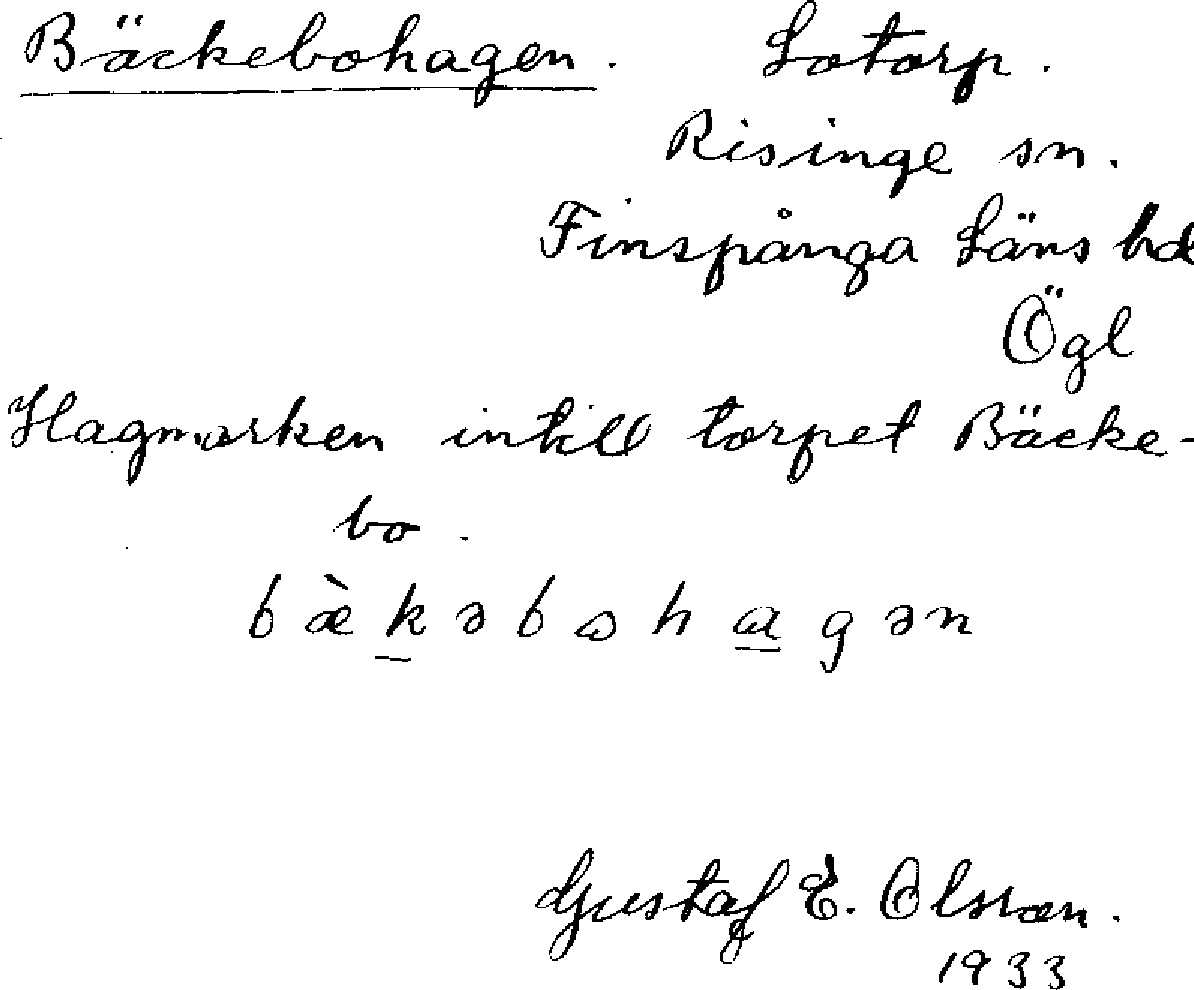 Bäckebohagen. Lotorp.
Risinge sn.
Finspånga Läns hd
Ögl
Hagmarken intill torpet Bäcke-
bo.
bæ̀kəbɷhagən
Gustaf E. Olsson.
1933